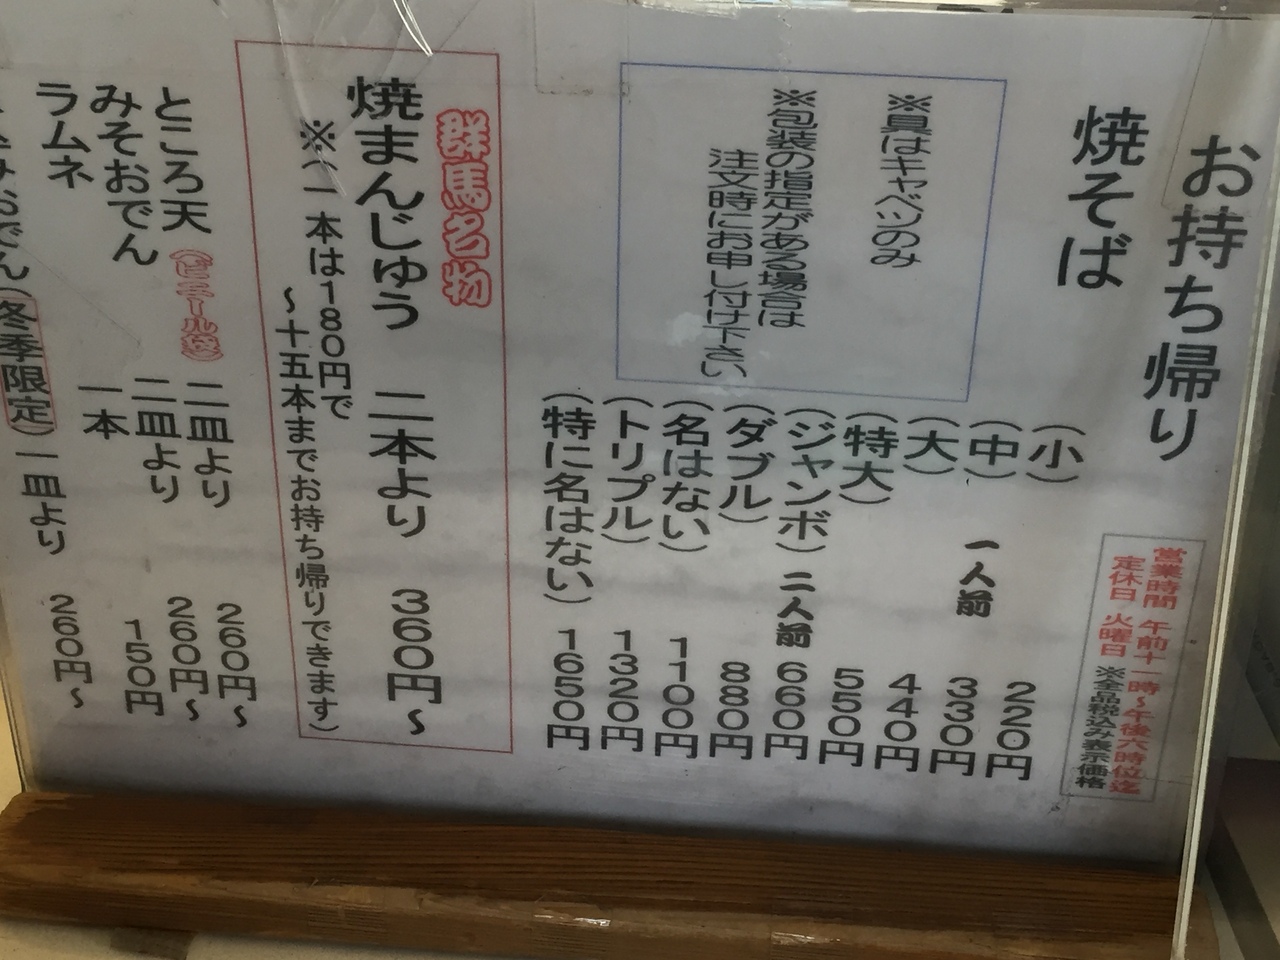 お持ち帰り
営業時間 午前十一時～午後六時位迄
定休日 火曜日 ※全品税込み表示価格
焼そば
(小) 220円
(中) 一人前 330円
(大) 440円
(特大) 550円
(ジャンボ) 二人前 660円
(ダブル) 880円
(名はない) 1100円
(トリプル) 1320円
(特に名はない) 1650円
※具はキャベツのみ
※包装の指定がある場合は
注文時にお申し付け下さい
群馬名物
焼まんじゅう 二本より 360円～
※(一本は180円で
～十五本までお持ち帰りできます)
ところ天 (ビニール袋) 二皿より 260円～
みそおでん 二皿より 260円～
ラムネ 一本 150円
みおでん(冬季限定) 一皿より 260円～